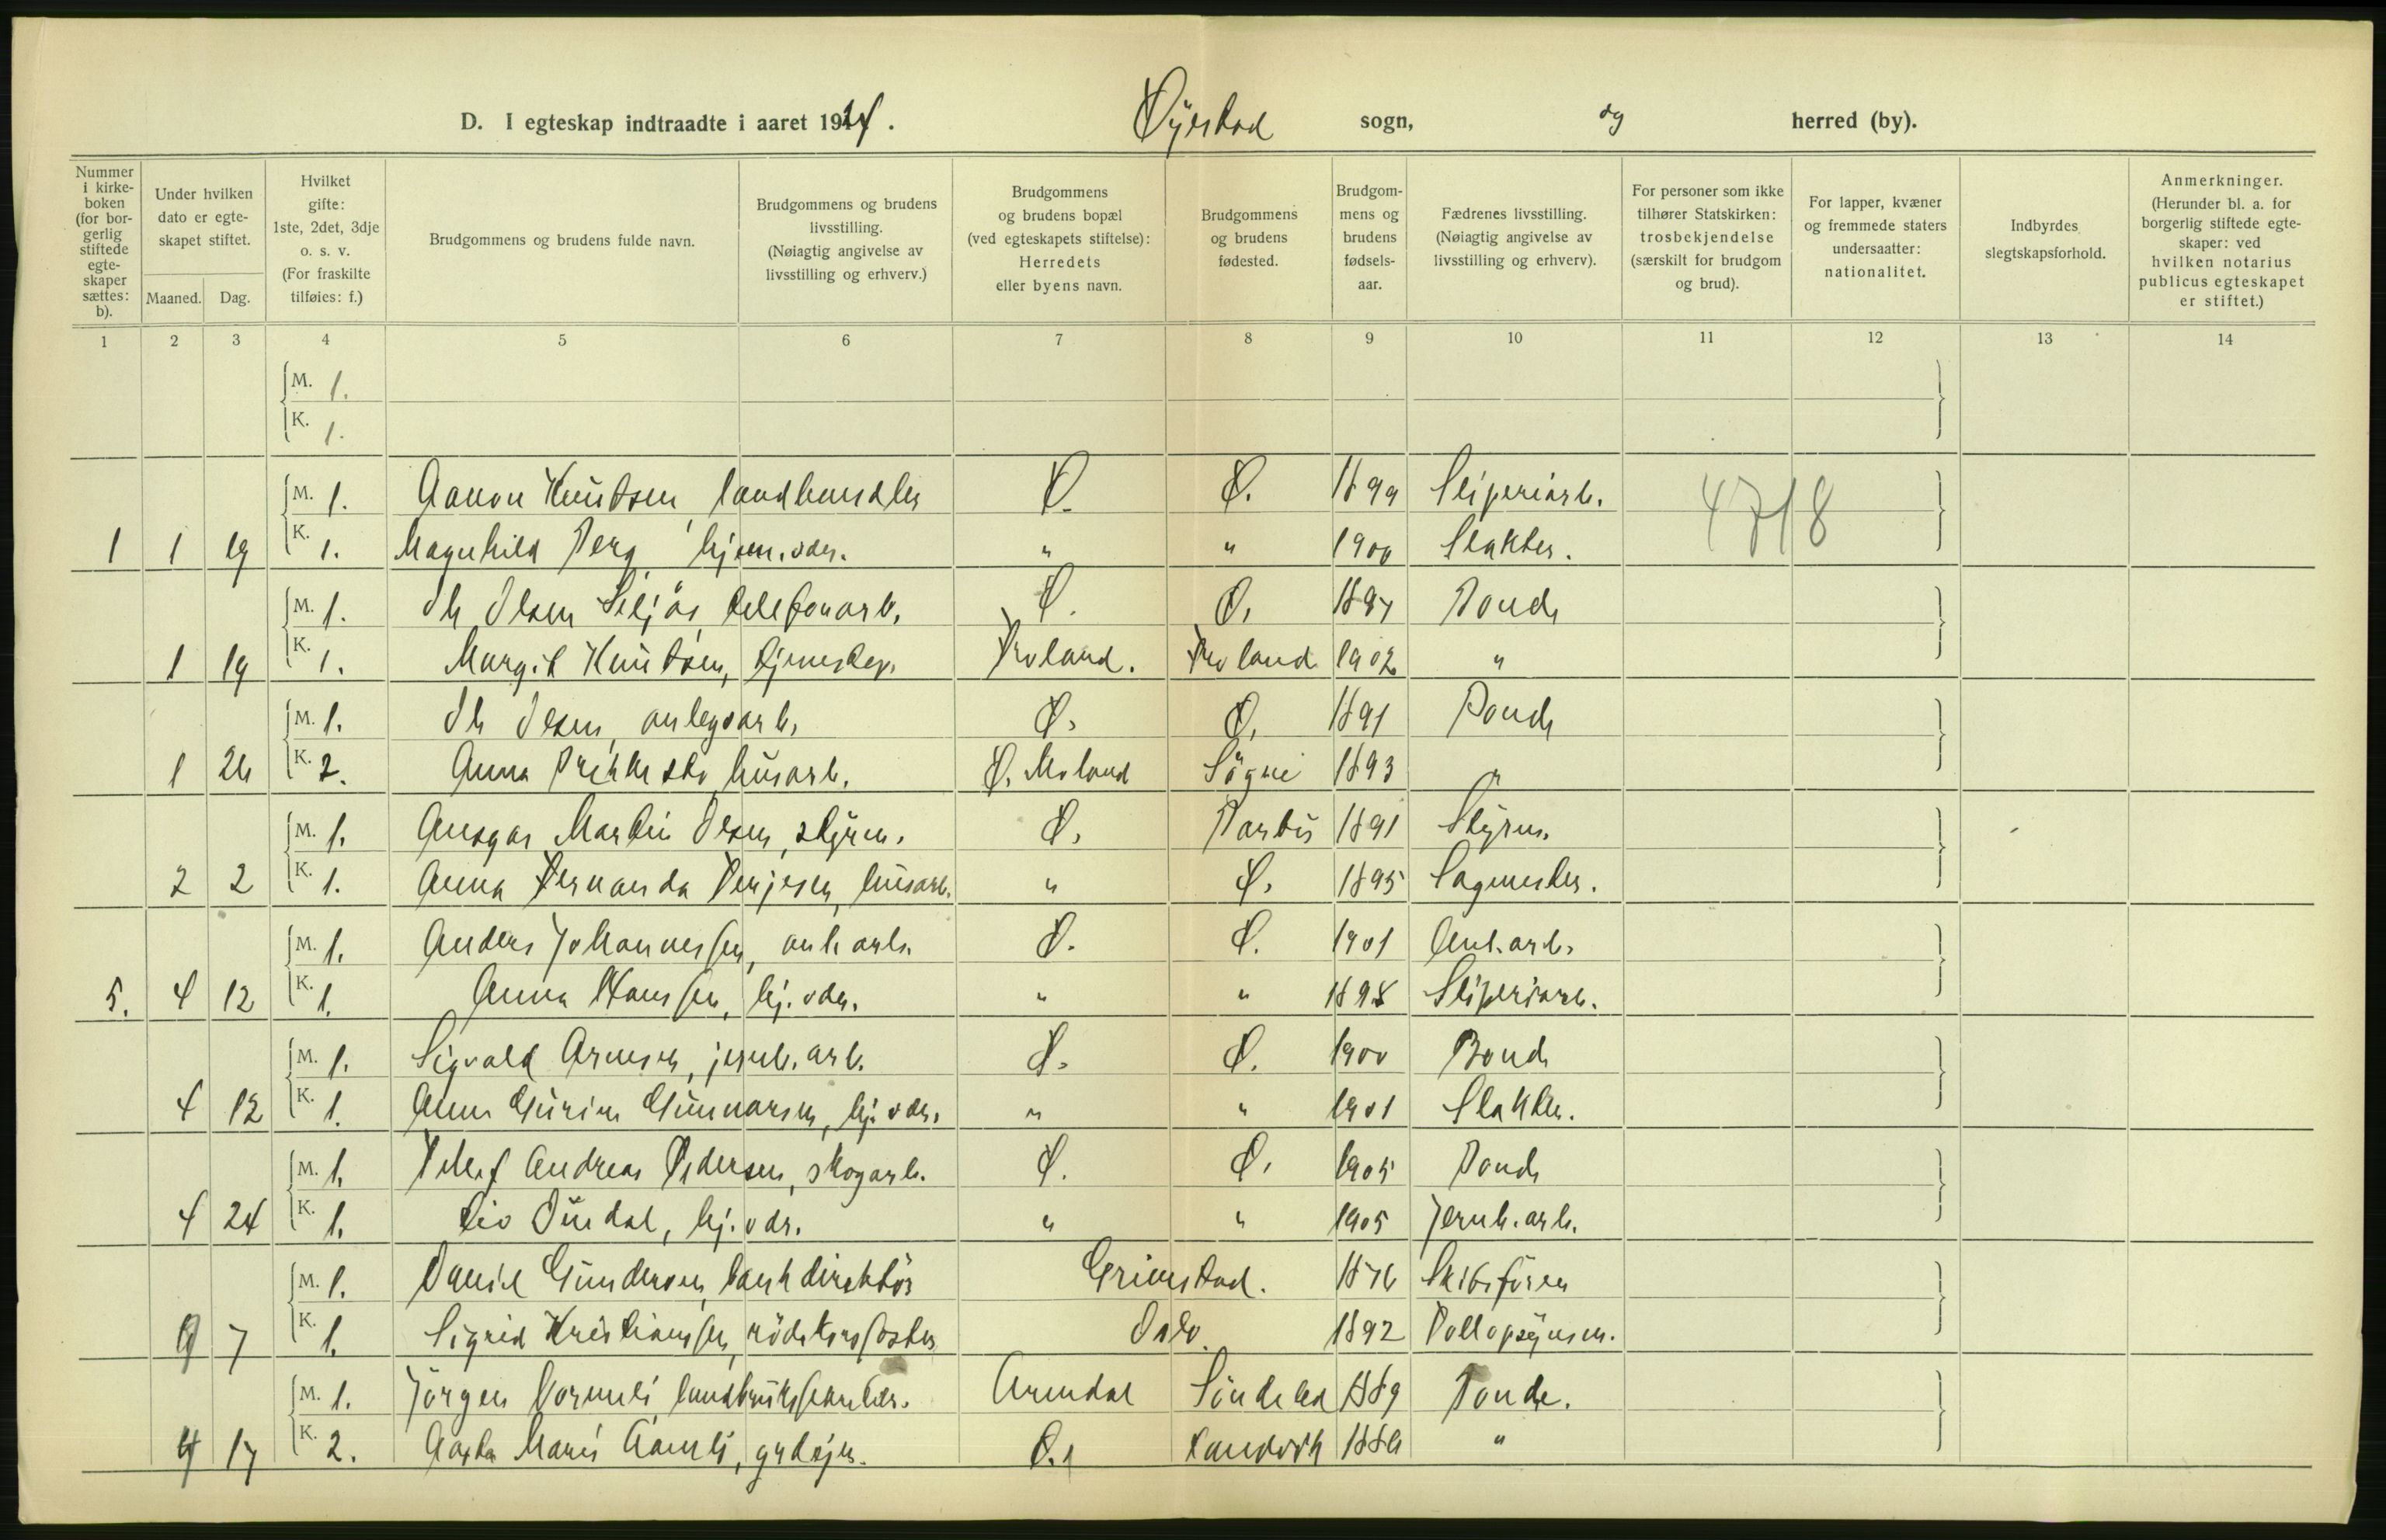 D. I egteskap indtraadte i aaret 1924. Øyestad sogn, og herred (by).
Nummer i kirkeboken (for borgerlig stiftede egteskaper sættes: b).
Under hvilken dato er egteskapet stiftet.
Maaned. Dag.
Hvilket gifte: 1ste, 2det, 3dje o. s. v. (For fraskilte tilføies: f.)
Brudgommens og brudens fulde navn.
Brudgommens og brudens livsstilling. (Nøiagtig angivelse av livsstilling og erhverv.)
Brudgommens og brudens bopæl (ved egteskapets stiftelse): Herredets eller byens navn.
Brudgommens og brudens fødested.
Brudgommens og brudens fødselsaar.
Fædrenes livsstilling. (Nøiagtig angivelse av livsstilling og erhverv).
For personer som ikke tilhører Statskirken: trosbekjendelse (særskilt for brudgom og brud).
For lapper, kvæner og fremmede staters undersaatter: nationalitet.
Indbyrdes slegtskapsforhold.
Anmerkninger. (Herunder bl. a. for borgerlig stiftede egteskaper: ved hvilken notarius publicus egteskapet er stiftet.)
1 2 3 4 5 6 7 8 9 10 11 12 13 14
M. 1.
K. 1.
M. 1. Aanon Knutsen, landhandler Ø. Ø. 1899 Sliperiarb. 4718
1 1 19 K. 1. Magnhild Berg, hjem. vær. " " 1900 Slakter.
M. 1. Ole Olsen Siljås, telefonarb. Ø. Ø. 1897 Bonde
1 19 K. 1. Margit Knutsen, tjenestep. Froland. Froland 1902 "
M. 1. Ole Olsen, anlegsarb. Ø. Ø. 1891 Bonde
1 26 K. 2. Anna husarb. Ø. Moland Søgne 1893 "
M. 1. Ansgar Martin Olsen, styrm. Ø. Barbu 1891 Styrm.
2 2 K. 1. Anna Fernanda Terjesen, husarb. " Ø. 1895 Sagmester.
M. 1. Anders Johannessen, anl. arb. Ø. Ø. 1901 Anl. arb.
5. 4 12 K. 1. Anna Hanssen, hj. vær. " " 1898 Sliperiarb.
M. 1. Sigvald Arnesen, jernb. arb. Ø. Ø. 1900 Bonde
4 12 K. 1. Anne Gurine Gunnarsen, hj. vær. " " 1901 Slakter.
M. 1. Andreas Pedersen, skogarb. Ø. Ø. 1905 Bonde
4 24 K. 1. Liv hj. vær. " " 1905 Jernb. arb.
M. 1. Daniel Gundersen, bankdirektør Grimstad. 1876 Skibsfører
7 K. 1. Sigrid Kristiansen, rødekorssøster Oslo 1892
M. 1. Jørgen landbrukskandidat. Arendal Søndeled 1889 Bonde.
4 17 K. 2. Marie Aamli, grdejer. Ø. Landvik 1886 "